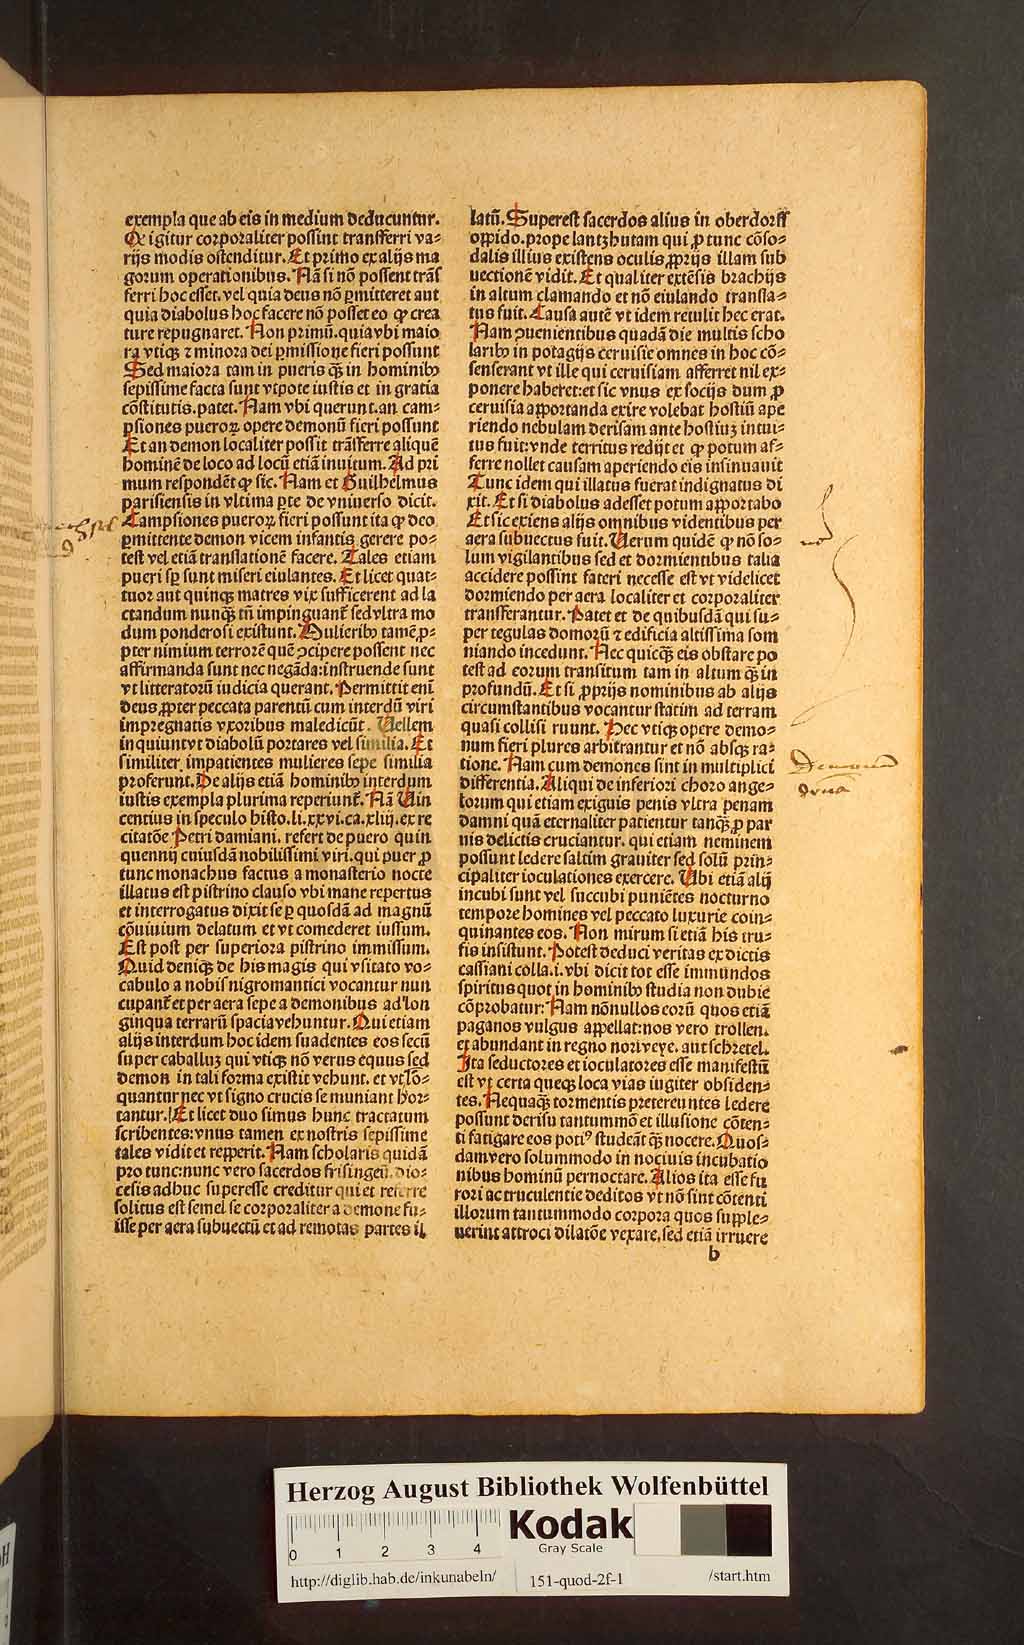 exempla que ab eis in medium deducuntur.
Qꝫ igitur corporaliter possint transferri va⸗
rijs modis ostenditur. Et primo ex alijs ma
gorum operationibus. Nā si nō possent trās
ferri hoc esset. vel quia deus nō ꝑmitteret aut
quia diabolus hoc facere nō posset eo ꝙ crea
ture repugnaret. Non primū. quia vbi maio
ra vtiqꝫ ⁊ minora dei ꝑmissione fieri possunt
Sed maiora tam in pueris qꝫ̄ in hominibꝫ
sepissime facta sunt vtpote iustis et in gratia
cōstitutis. patet. Nam vbi querunt. an cam⸗
psiones pueroꝝ opere demonū fieri possunt
Et an demon localiter possit trāsferre aliquē
hominē de loco ad locū etiā inuitum. Ad pri
mum respondēt ꝙ sic. Nam et Guilhelmus
parisiensis in vltima ꝑte de vniuerso dicit.
Campsiones pueroꝝ fieri possunt ita ꝙ deo
ꝑmittente demon vicem infantis gerere po⸗
test vel etiā translationē facere. Tales etiam
pueri sꝑ sunt miseri eiulantes. Et licet quat⸗
tuor aut quinqꝫ matres vix sufficerent ad la
ctandum nunqꝫ̄ tn̄ impinguant̄ sed vltra mo
dum ponderosi existunt. Mulieribꝫ tamē ꝓ⸗
pter nimium terrorē quē ꝯcipere possent nec
affirmanda sunt nec negāda: instruende sunt
vt litteratorū iudicia querant. Permittit eni
deus ꝓpter peccata parentū cum interdū viri
impregnatis vxoribus maledicūt. Uellem
inquiunt vt diabolū portares vel similia. Et
similiter impatientes mulieres sepe similia
proferunt. De alijs etiā hominibꝫ interdum
iustis exempla plurima reperiunt̄. Nā Uin
centius in speculo histo. li. xxvi. ca. xliij. ex re
citatōe Petri damiani. refert de puero quin
quennij cuiusdā nobilissimi viri. qui puer ꝓ
tunc monachus factus a monasterio nocte
illatus est pistrino clauso vbi mane repertus
et interrogatus dixit se ꝑ quosdā ad magnū
cōuiuium delatum et vt comederet iussum.
Est post per superiora pistrino immissum.
Quid deniqꝫ de his magis qui vsitato vo⸗
cabulo a nobis nigromantici vocantur nun
cupant̄ et per aera sepe a demonibus ad lon
ginqua terrarū spacia vehuntur. Qui etiam
alijs interdum hoc idem suadentes eos secū
super caballuꝫ qui vtiqꝫ nō verus equus sed
demon in tali forma existit vehunt. et vt lō⸗
quantur nec vt signo crucis se muniant hor⸗
tantur. Et licet duo simus hunc tractatum
scribentes: vnus tamen ex nostris sepissime
tales vidit et repperit. Nam scholaris quidā
pro tunc: nunc vero sacerdos frisingeū. dio⸗
cesis adhuc superesse creditur qui et referre
solitus est semel se corporaliter a demone fu⸗
isse per aera subuectū et ad remotas partes il
latū. Superest sacerdos alius in oberdorff
oppido. prope lantzhutam qui ꝓ tunc cōso⸗
dalis illius existens oculis ꝓprijs illam sub
uectionē vidit. Et qualiter extēsis brachijs
in altum clamando et nō eiulando transla⸗
tus fuit. Causa autē vt idem retulit hec erat.
Nam ꝯuenientibus quadā die multis scho
laribꝫ in potagijs ceruisie omnes in hoc cō⸗
senserant vt ille qui ceruisiam afferret nil ex⸗
ponere haberet: et sic vnus ex socijs dum ꝓ
ceruisia apportanda exire volebat hostiū ape
riendo nebulam densam ante hostiuꝫ intui⸗
tus fuit: vnde territus redijt et ꝙ potum af⸗
ferre nollet causam aperiendo eis insinuauit
Tunc idem qui illatus fuerat indignatus di
xit. Et si diabolus adesset potum apportabo
Et sic exiens alijs omnibus videntibus per
aera subuectus fuit. Uerum quidē ꝙ nō so⸗
lum vigilantibus sed et dormientibus talia
accidere possint fateri necesse est vt videlicet
dormiendo per aera localiter et corporaliter
transferantur. Patet et de quibusdā qui su⸗
per tegulas domorū ⁊ edificia altissima som
niando incedunt. Nec quicqꝫ eis obstare po
test ad eorum transitum tam in altum qꝫ̄ in
profundū. Et si ꝓprijs nominibus ab alijs
circumstantibus vocantur statim ad terram
quasi collisi ruunt. Hec vtiqꝫ opere demo⸗
num fieri plures arbitrantur et nō absqꝫ ra⸗
tione. Nam cum demones sint in multiplici
differentia. Aliqui de inferiori choro ange⸗
lorum qui etiam exiguis penis vltra penam
damni quā eternaliter patientur tanqꝫ̄ ꝓ par
uis delictis cruciantur. qui etiam neminem
possunt ledere saltim grauiter sed solū prin⸗
cipaliter ioculationes exercere. Ubi etiā alij
incubi sunt vel succubi puniētes nocturno
tempore homines vel peccato luxurie coin⸗
quinantes eos. Non mirum si etiā his tru⸗
fis insistunt. Potest deduci veritas ex dictis
cassiani colla. i. vbi dicit tot esse immundos
spiritus quot in hominibꝫ studia non dubie
cōprobatur: Nam nōnullos eorū quos etiā
paganos vulgus appellat: nos vero trollen.
et abundant in regno norweye. aut schretel.
Ita seductores et ioculatores esse manifestū
est vt certa queqꝫ loca vias iugiter obsiden⸗
tes. Nequaqꝫ̄ tormentis pretereuntes ledere
possunt derisu tantummō et illusione cōten⸗
ti fatigare eos potiꝰ studeāt qꝫ̄ nocere. Quos⸗
dam vero solummodo in nociuis incubatio
nibus hominū pernoctare. Alios ita esse fu
rori ac truculentie deditos vt nō sint cōtenti
illorum tantummodo corpora quos supple⸗
uerint attroci dilatōe vexare. sed etiā irruere
b
Demonum
Herzog August Bibliothek Wolfenbüttel
0 1 2 3 4
Kodak
Gray Scale
http://diglib.hab.de/inkunabeln/
151-quod-2f-1
/start.htm